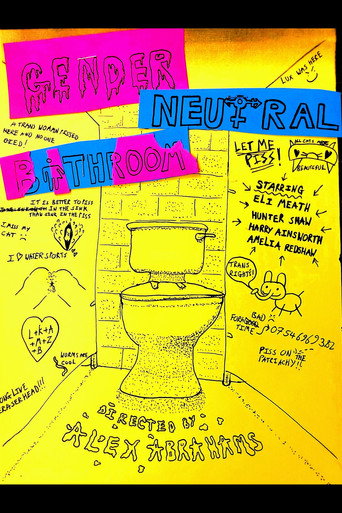 GENDER
NEUTRAL
BATHROOM
LUX WAS HERE
A TRANS WOMAN PISSED
HERE AND NO ONE
DIED!
LET ME
PISS!
ALL CATS ARE
BEAUTIFUL
IT IS BETTER TO PISS
IN THE SINK
THAN SINK IN THE PISS
I MISS MY
CAT
I ♡ WATERSPORTS
STARRING
ELI MEATH
HUNTER SHAW
HARRY AINSWORTH
AMELIA REDSHAW
TRANS
RIGHTS!
L+K+A
+M+Z
+B
WORMS ARE
COOL
FOR A
BAD
TIME
PISS ON THE
PATRIACHY!!
LONG LIVE
ERASERHEAD!!!
DIRECTED BY
ALEX ABRAHAMS